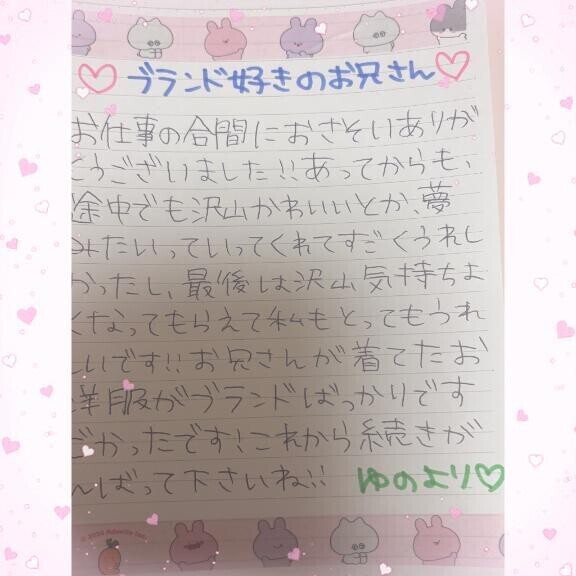 ブランド好きのお兄さん
お仕事の合間におさそいありが
とうございました!!あってからも、
途中でも沢山かわいいとか、夢
みたいっていってくれてすごくうれし
かったし、最後は沢山気持ちよ
くなってもらえて私もとってもうれ
しいです!!お兄さんが着てたお
洋服がブランドばっかりです
ごかったです!これから続きが
んばって下さいね!! ゆのより♡